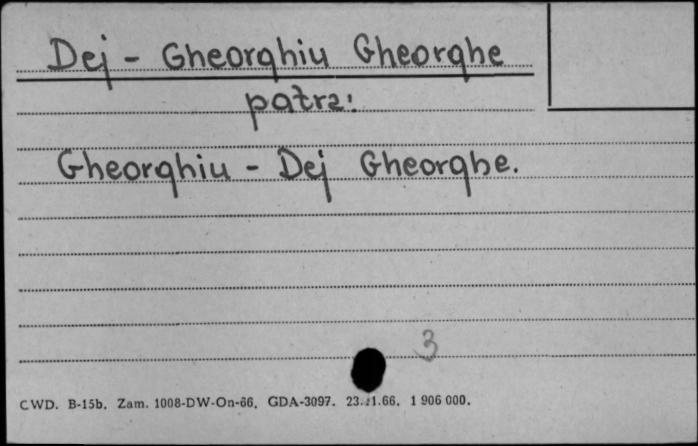 Dej - Gheorghiu Gheorghe
patrz:
Gheorghiu - Dej Gheorghe.
3
CWD. B-15b. Zam. 1008-DW-On-66. GDA-3097. 1 906 000.